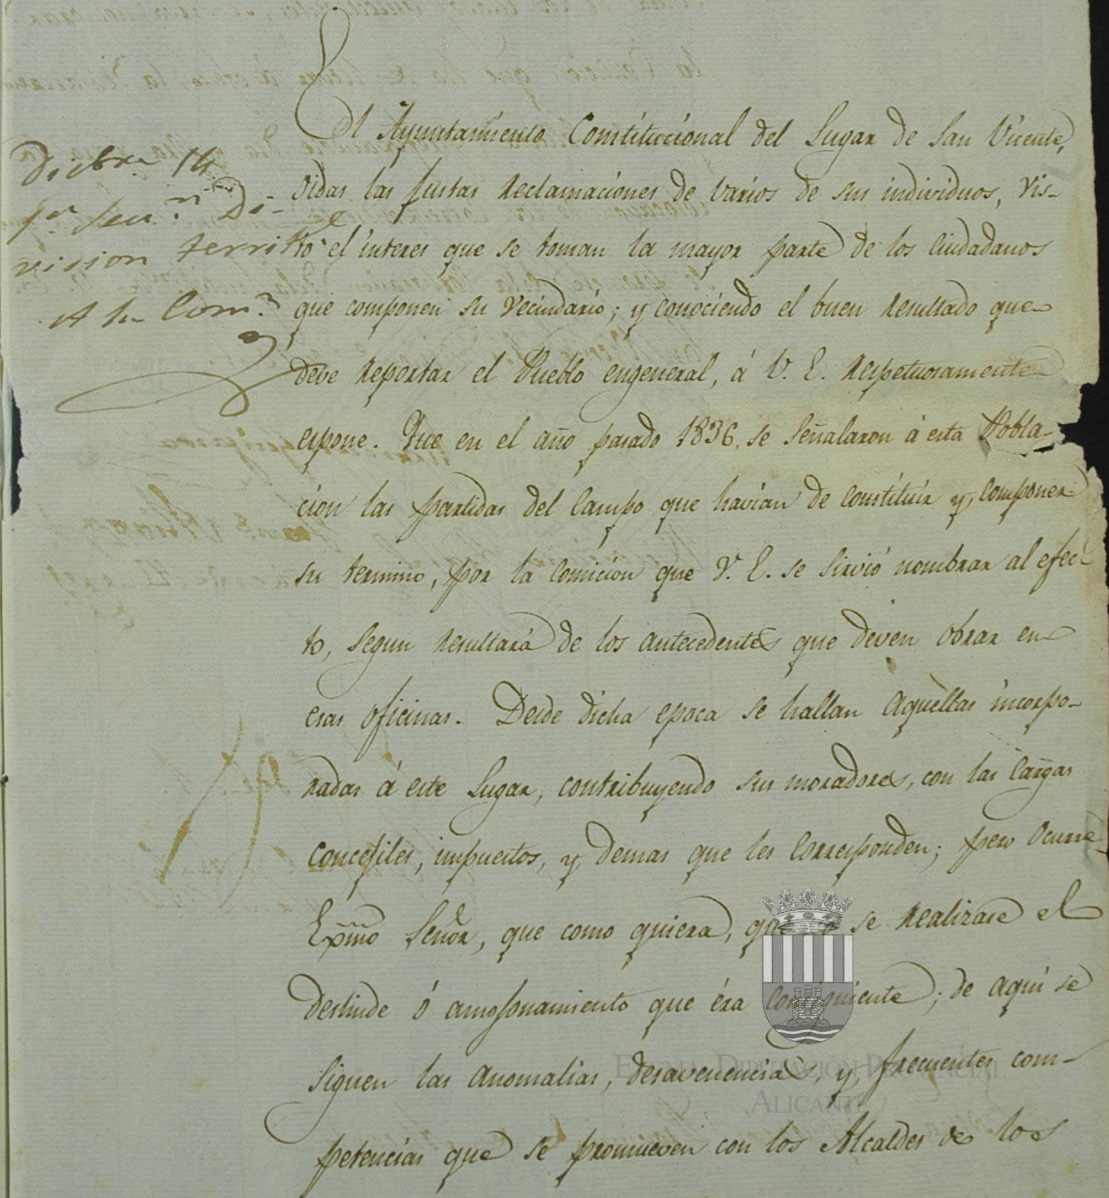 Dicbre 14
Di-
vision territl
A la Comn
El Ayuntamiento Constitucional del Lugar de San Vicente,
oidas las justas reclamaciones de varios de sus individuos, vis-
to el interes que se toman la mayor parte de los Ciudadanos
que componen su Vecindario; y conociendo el buen resultado que
debe reportar el Pueblo engeneral, á V. E. respetuosamente
espone. Que en el año pasado 1836, se señalaron á esta Pobla-
cion las partidas del Campo que havian de constituir y componer
su termino, por la Comicion que V. E. se sirvió nombrar al efec-
to, segun resultará de los antecedentes que deven obrar en
esas oficinas. Desde dicha epoca se hallan aquellas incorpo-
radas á este Lugar, contribuyendo sus moradores, con las cargas
concegiles, impuestos, y demas que les corresponden; pero ocurre
Exmo Señor, que como quiera, que no se realizase el
deslinde ó amojonamiento que éra consiguiente; de aqui se
siguen las anomalias, desavenencias, y frecuentes com-
petencias que se promueven con los Alcaldes de los
Excma. Diputación Provincial
Alicante